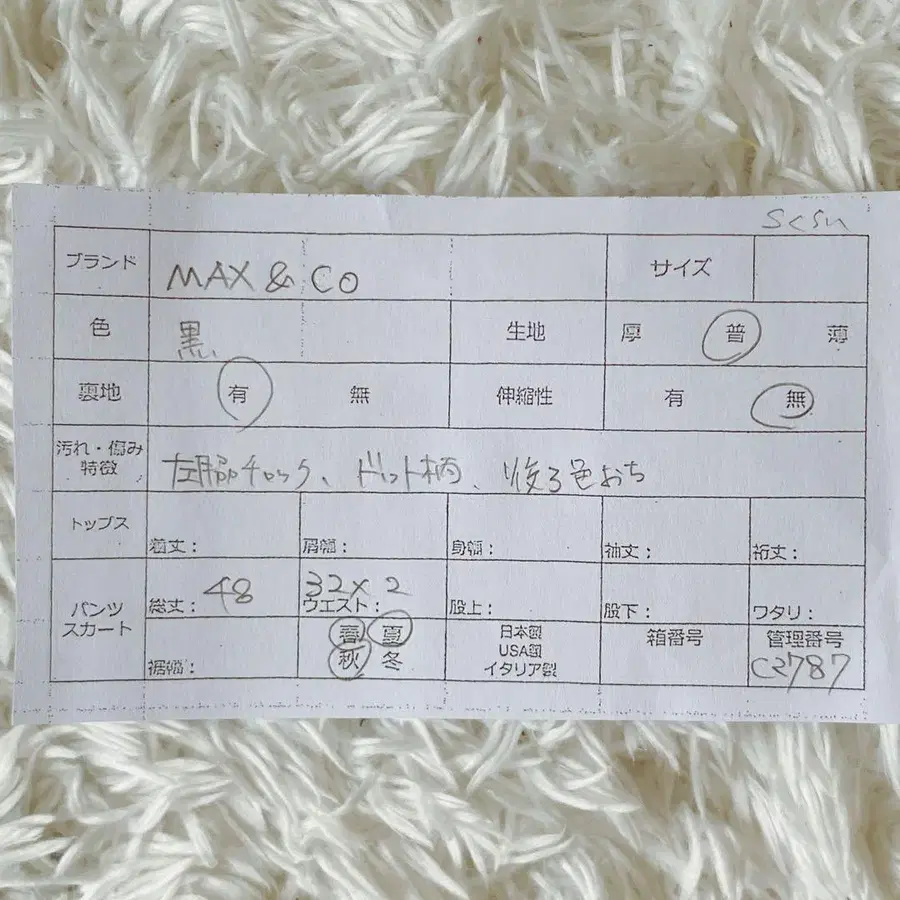 ScSn
ブランド MAX & CO サイズ
色 黒 生地 厚 普 薄
裏地 有 無 伸縮性 有 無
汚れ・傷み
特徴 左脇チャック、ドット柄、後ろ色おち
トップス 着丈: 肩幅: 身幅: 袖丈: 裄丈:
パンツ
スカート 総丈: 48 ウエスト: 32×2 股上: 股下: ワタリ:
裾幅: 春 夏 秋 冬 日本製 USA製 イタリア製 箱番号 管理番号 C2787